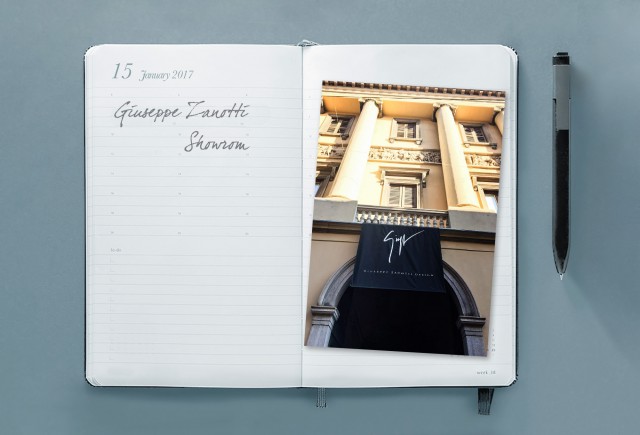 15 January 2017
Giuseppe Zanotti
Showrom
GIUSEPPE ZANOTTI DESIGN